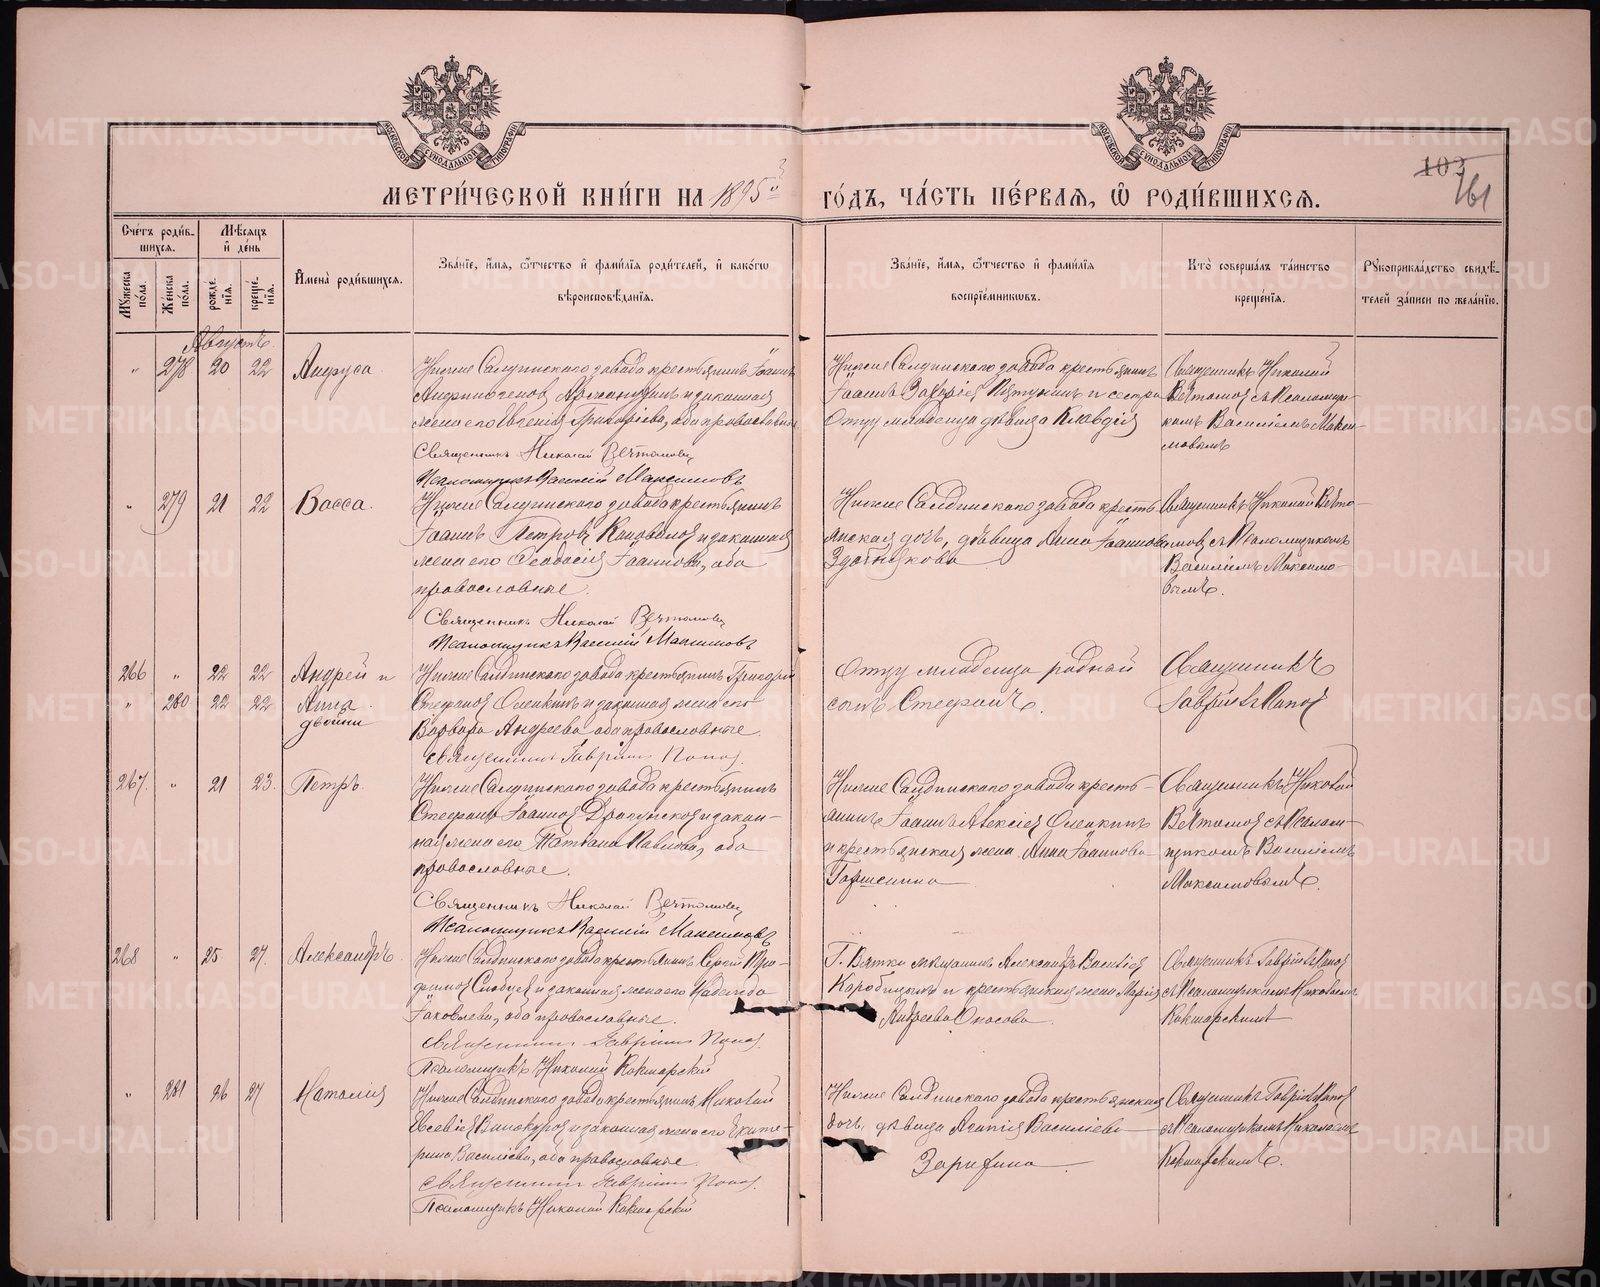 МЕТРИ́ЧЕСКОЙ КНИ́ГИ НА 1895й ГО́ДЪ, ЧА́СТЬ ПЕ́РВАЯ, Ѡ҆ РОДИ́ВШИХСЯ.
103
161
МОСКОВСКОЙ СѴНОДАЛЬНОЙ ТИПОГРАФІИ
МОСКОВСКОЙ СѴНОДАЛЬНОЙ ТИПОГРАФІИ
Сче́тъ роди́в-
шихся.
Мꙋжеска по́ла.
Же́нска по́ла.
Мѣ́сяцъ
и҆ де́нь
рожде́-
нїя.
креще́-
нїя.
И҆мена̀ роди́вшихся.
Зва́нїе, и҆́мя, ѻ҆́тчество и҆ фами́лїа роди́телей, и҆ како́гѡ
вѣроисповѣ́данїя.
Зва́нїе, и҆́мя, ѻ҆́тчество и҆ фами́лїа
воспрїе́мникѡвъ.
Кто̀ соверша́лъ та́инство
креще́нїя.
Рꙋкоприкла́дство свидѣ́-
телей за́писи по жела́нїю.
Августъ
" 278 20 22
Нижне Салдинскаго завода крестьянинъ Іоаннъ
жена его Евгенія Григоріева, оба православные
Священникъ Николай
Псаломщикъ Василій Максимовъ
Нижне Салдинскаго завода крестьянинъ
Іоаннъ Захаріевъ и сестра
отцу младенца дѣвица Клавдія
Священникъ Николай
съ Псаломщи-
комъ Василіемъ Макси-
мовымъ
" 279 21 22 Васса.
Нижне Салдинскаго завода крестьянинъ
Іоаннъ Петровъ и законная
жена его Ѳеодосія Іоаннова, оба
православные.
Священникъ Николай
Псаломщикъ Василій Максимовъ
Нижне Салдинскаго завода кресть-
янская дочь, дѣвица Анна Іоаннова
Священникъ Николай
съ Псаломщикомъ
Василіемъ Максимо-
вымъ.
266 " 22 22 Андрей и
" 280 22 22 Анна
двойни
Нижне Салдинскаго завода крестьянинъ Григорій
Стефановъ Оленкинъ и законная жена его
Варвара Андреева оба православные.
Священникъ Гавріилъ Поповъ
Отцу младенца родной
сынъ Стефанъ.
Священникъ
Гавріилъ Поповъ
267. " 21 23. Петръ.
Нижне Салдинскаго завода крестьянинъ
Стефанъ Іоанновъ и закон-
ная жена его Татьяна Павлова, оба
православные.
Священникъ Николай
Псаломщикъ Василій Максимовъ
Нижне Салдинскаго завода кресть-
янинъ Іоаннъ Алексіевъ Оленкинъ
и крестьянская жена Анна Іоаннова
Священникъ Николай
съ Псалом-
щикомъ Василіемъ
Максимовымъ.
268 " 25 27. Александръ.
Нижне Салдинскаго завода крестьянинъ Сергій Тро-
фимовъ и законная жена его Надежда
Іаковлева, оба православные.
Священникъ Гавріилъ Поповъ
Псаломщикъ Николай Кокшарскій
Г. Вятки мѣщанинъ Александръ Василіевъ
и крестьянская жена Марія
Андреева
Священникъ Гавріилъ Поповъ
съ Псаломщикомъ Николаемъ
Кокшарскимъ
" 281 26 27 Наталия
Нижне Салдинскаго завода крестьянинъ Николай
Евсевіевъ Винокуровъ и законная жена его Екате-
рина Василіева, оба православные.
Священникъ Гавріилъ Поповъ.
Псаломщикъ Николай Кокшарскій
Нижне Салдинскаго завода крестьянская
дочь, дѣвица Агапія Василіева
Священникъ Гавріилъ Поповъ
съ Псаломщикомъ Николаемъ
Кокшарскимъ.
METRIKI.GASO-URAL.RU